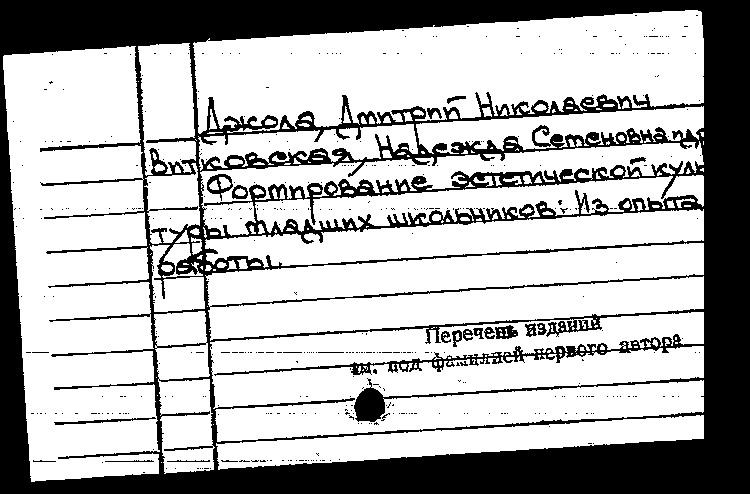 Джола, Дмитрий Николаевич
Витковская, Надежда Семеновна и др
Формирование эстетической куль
туры младших школьников: Из опыта
работы.
Перечень изданий
см. под фамилией первого автора